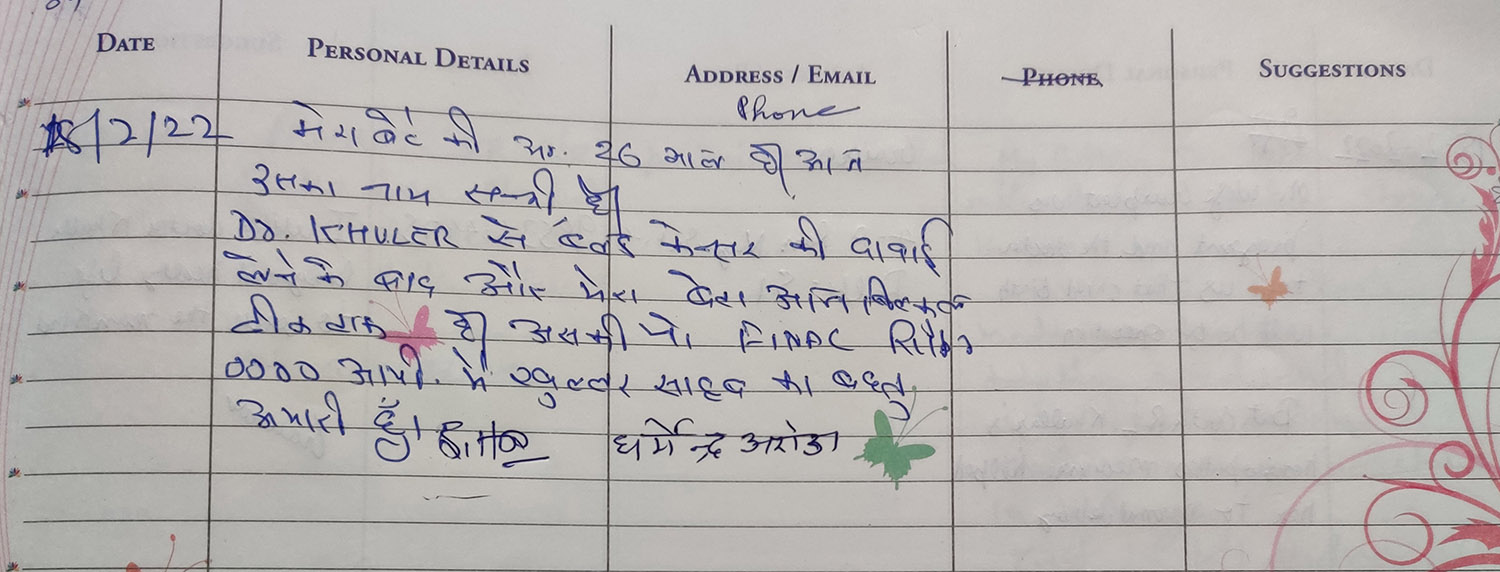 DATE PERSONAL DETAILS ADDRESS / EMAIL PHONE SUGGESTIONS
Phone
18/2/22 मेरा बेटे की 26 साल है आज
उसका नाम सन्नी है
Dr. KHULER से ब्लड केन्सर की दवाई
लेने के बाद और मेरा बेटा आज बिल्कुल
ठीक ठाक है उसकी FINAL रिपोर्ट
0000 आयी. मैं खुल्लर साहब का बहुत
अभारी हूँ। धर्मेन्द्र अरोडा